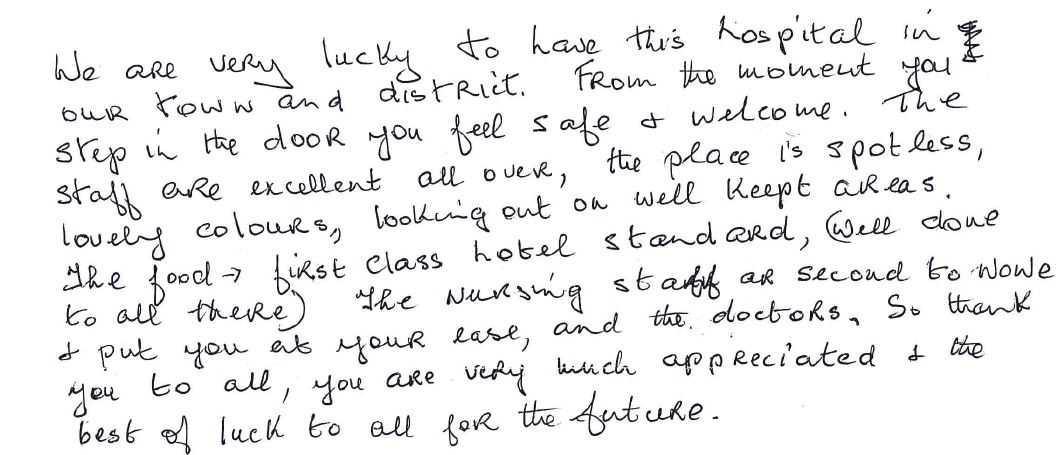 We are very lucky to have this hospital in
our town and district. From the moment you
step in the door you feel safe & welcome. The
staff are excellent all over, the place is spotless,
lovely colours, looking out on well keept areas.
The food → first class hotel standard, (well done
to all there) The nursing staff ar second to none
& put you at your ease, and the doctors. So thank
you to all, you are very much appreciated & the
best of luck to all for the future.